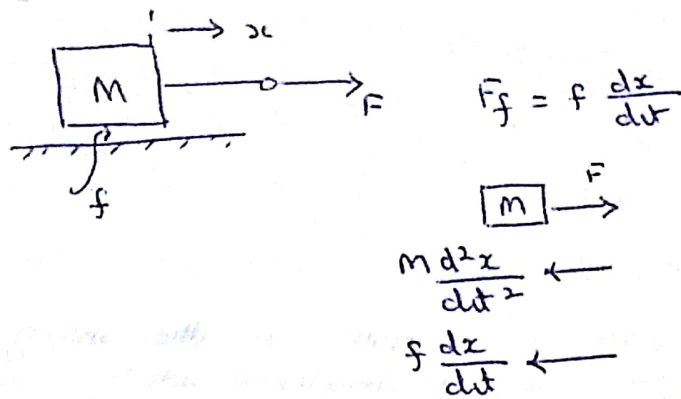 x
M
F
f
F_f = f dx/dt
M
F
M d²x/dt²
f dx/dt